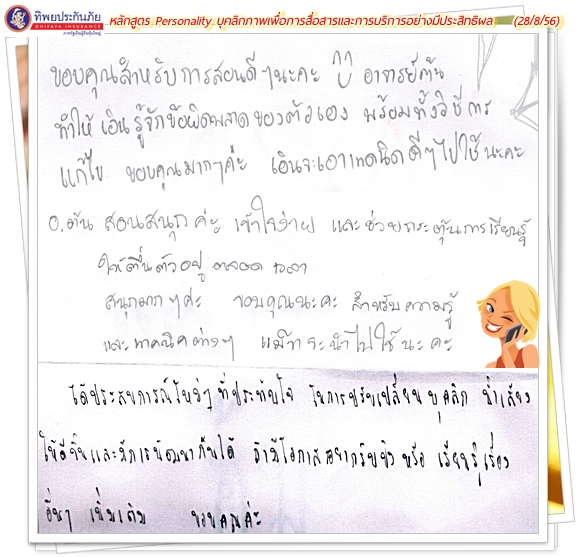 ทิพยประกันภัย
DHIPAYA INSURANCE
หลักสูตร Personality บุคลิกภาพเพื่อการสื่อสารและการบริการอย่างมีประสิทธิผล (28/8/56)
ขอบคุณสำหรับการสอนดีๆนะคะ อาจารย์ต้น
ทำให้ เอินรู้จักข้อผิดพลาดของตัวเอง พร้อมทั้งวิธีการ
แก้ไข ขอบคุณมากๆค่ะ เอินจะเอาเทคนิคดีๆไปใช้นะคะ
อ.ต้น สอนสนุกค่ะ เข้าใจง่าย และช่วยกระตุ้นการเรียนรู้
ให้ตื่นตัวอยู่ ตลอดเวลา
สนุกมากๆค่ะ ขอบคุณนะคะ สำหรับความรู้
และเทคนิคต่างๆ จะนำไปใช้นะคะ
ได้ประสบการณ์ใหม่ๆ ที่ประทับใจ ในการปรับเปลี่ยนบุคลิก น้ำเสียง
ให้ดีขึ้นและมีการพัฒนาขึ้นได้ ถ้ามีโอกาสอยากรับฟัง หรือ เรียนรู้เรื่อง
อื่นๆ เพิ่มเติม ขอบคุณค่ะ